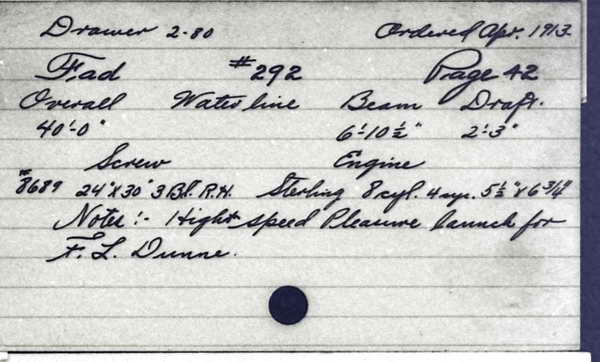 Drawer 2-80 Ordered Apr. 1913
Fad #292 Page 42
Overall Water line Beam Draft.
40'-0" 6'-10½" 2'-3"
Screw Engine
#8689 24"X30" 3 Bl. R.H. Sterling 8 cyl. 4 cyc. 5½"X6¾"
Notes :- High speed Pleasure launch for
F. L. Dunne.